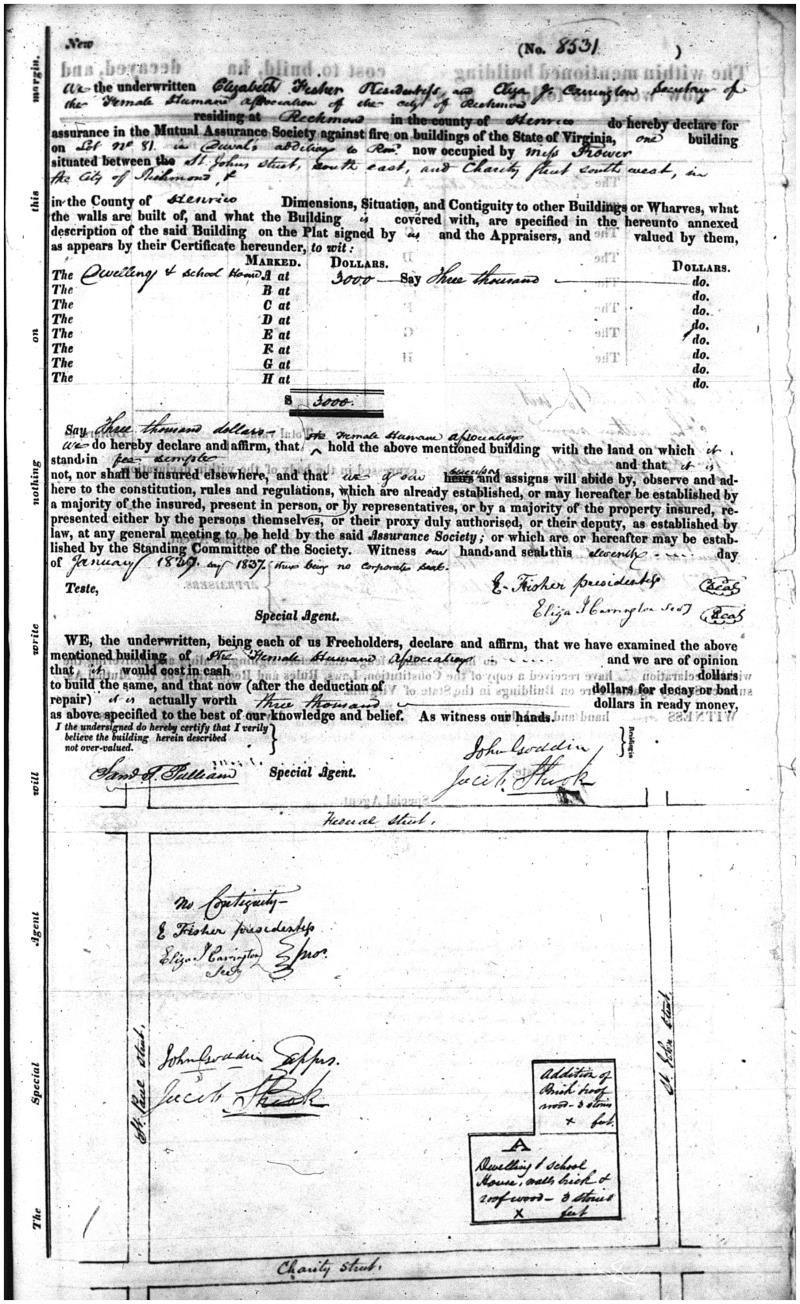 New
(No. 8531 )
We the underwritten Elizabeth Fisher Presidentess and Eliza J. Carrington Secretary of
the Female Humane Association of the city of Richmond
residing at Richmond in the county of Henrico do hereby declare for
assurance in the Mutual Assurance Society against fire on buildings of the State of Virginia, one building
on Lot No 81. in Duval's addition to now occupied by Miss
situated between the St. Johns street, north east, and Charity street south west, in
the City of Richmond, &
in the County of Henrico Dimensions, Situation, and Contiguity to other Buildings or Wharves, what
the walls are built of, and what the Building is covered with, are specified in the hereunto annexed
description of the said Building on the Plat signed by us and the Appraisers, and valued by them,
as appears by their Certificate hereunder, to wit:
MARKED. DOLLARS. DOLLARS.
The Dwelling & school House A at 3000 Say Three thousand do.
The B at do.
The C at do.
The D at do.
The E at do.
The F at do.
The G at do.
The H at do.
$ 3000.
Say Three thousand dollars
the Female Humane Association
We do hereby declare and affirm, that ^ hold the above mentioned building with the land on which it
stand in fee simple and that it is
successors
not, nor shall be insured elsewhere, and that we & our heirs and assigns will abide by, observe and ad-
here to the constitution, rules and regulations, which are already established, or may hereafter be established by
a majority of the insured, present in person, or by representatives, or by a majority of the property insured, re-
presented either by the persons themselves, or their proxy duly authorised, or their deputy, as established by
law, at any general meeting to be held by the said Assurance Society; or which are or hereafter may be estab-
lished by the Standing Committee of the Society. Witness our hand and seal this day
of January 1837. say 1837. there being no corporate seal.
Teste, E. Fisher presidentess (Seal)
Special Agent. Eliza J Carrington Secy (Seal)
WE, the underwritten, being each of us Freeholders, declare and affirm, that we have examined the above
mentioned building of the Female Humane Association and we are of opinion
that it would cost in cash dollars
to build the same, and that now (after the deduction of dollars for decay or bad
repair) it is actually worth three thousand dollars in ready money,
as above specified to the best of our knowledge and belief. As witness our hands.
I the undersigned do hereby certify that I verily
believe the building herein described
not over-valued.
John Goddin
Saml T. Pulliam Special Agent. Jacob Shook
Federal Street.
No Contiguity
E Fisher presidentess
Eliza J Carrington
Secy
John Goddin Apprs.
Jacob Shook
St. Paul street.
St. John Street.
Addition of
Brick & roof
wood - 3 stories
x feet.
A
Dwelling & school
House, walls brick &
roof wood - 3 stories
x feet
Charity Street.
The Special Agent will write nothing on this margin.